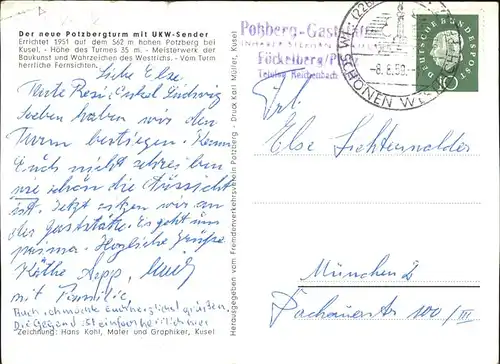 Der neue Potzbergturm mit UKW-Sender
Errichtet 1951 auf dem 562 m hohen Potzberg bei
Kusel. - Höhe des Turmes 35 m. - Meisterwerk der
Baukunst und Wahrzeichen des Westrichs. - Vom Turm
herrliche Fernsichten.
Liebe Else
Tante Resi, Onkel Ludwig
Soeben haben wir den
Turm bestiegen. Kann
Euch nicht schreiben
wie schön die Aussicht
ist. Jetzt sitzen wir an
der Gaststätte. Es geht uns
prima. Herzliche Grüße
Käthe
mit Familie
Auch ich möchte Euch herzlichst grüßen.
Die Gegend ist einfach herrlich hier
Zeichnung: Hans Kohl, Maler und Graphiker, Kusel
Herausgegeben vom Fremdenverkehrsverein Potzberg - Druck Karl Müller, Kusel
Potzberg-Gaststätte
Föckelberg/Pfalz
Telefon Reichenbach
SCHÖNEN WE
-8.6.59.
DEUTSCHE BUNDESPOST
10
Frl.
Else Lichtenwalder
München 2
Dachauerstr. 100/III